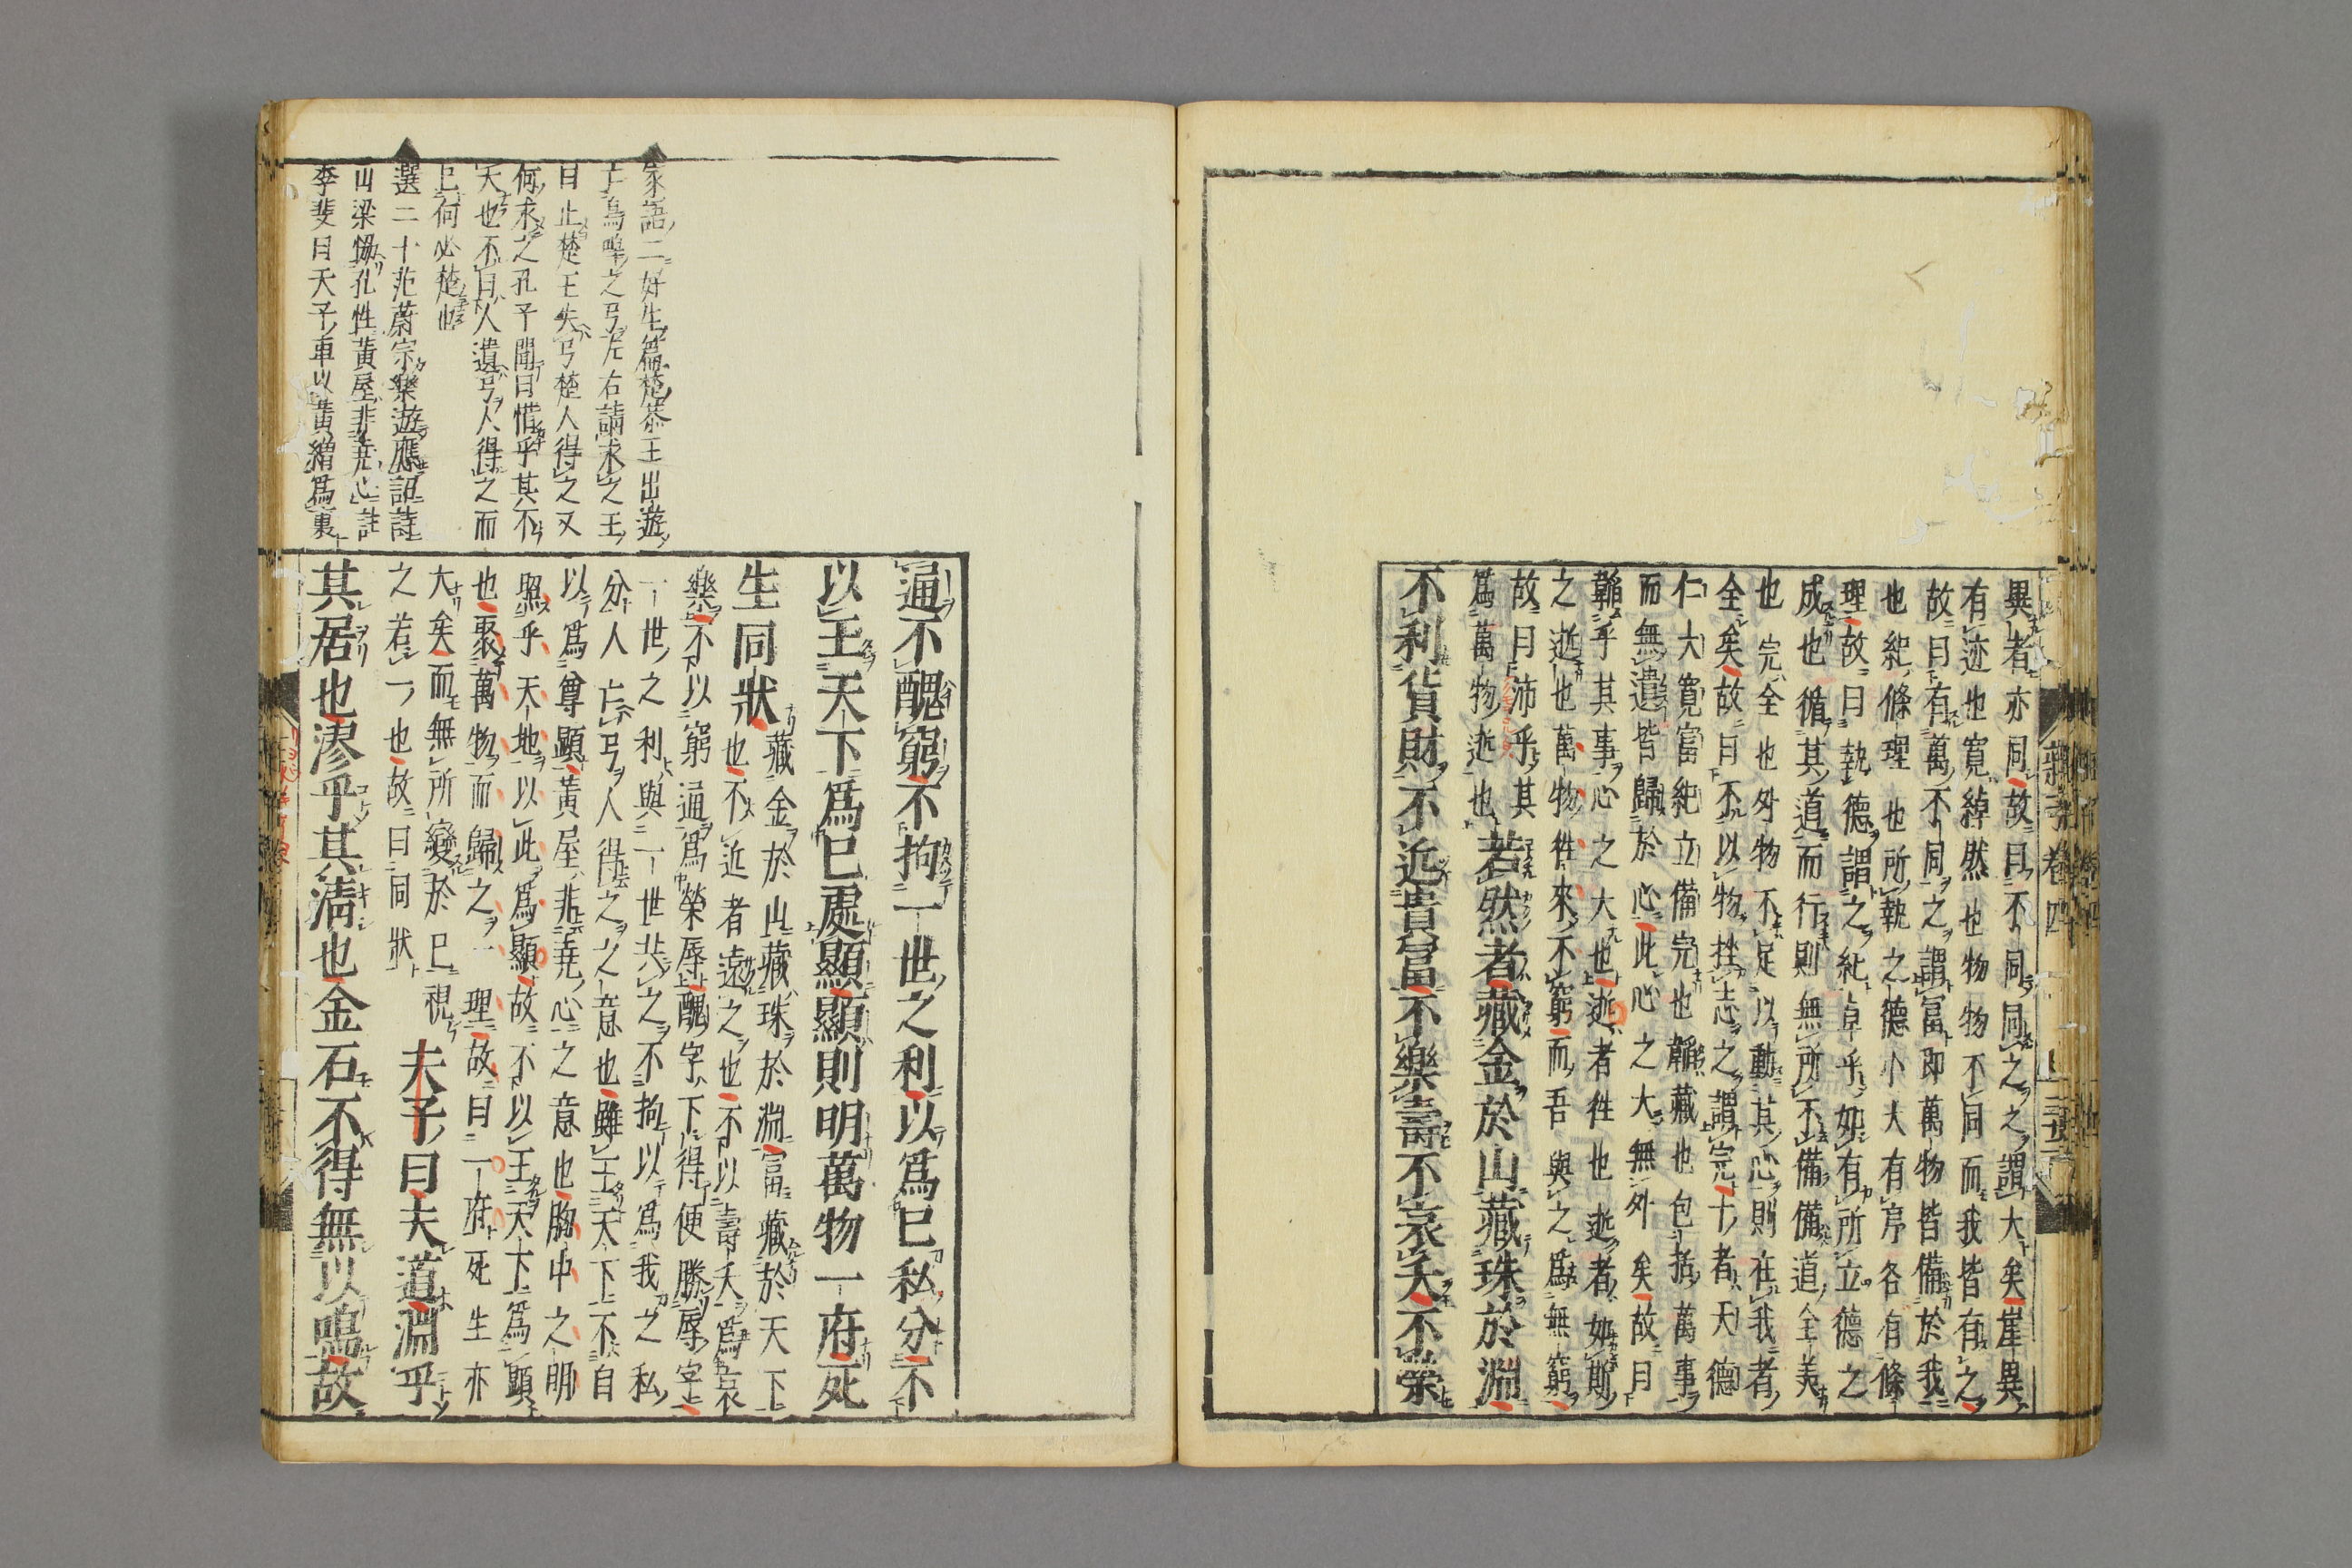 異者亦同故曰不同同之之謂大矣崖異
有迹也寬綽然也物物不同而我皆有之
故曰有萬不同之謂富即萬物皆備於我
也紀條理也所執之德小大有序各有條
理故曰執德謂之紀卓乎如有所立德之
成也循其道而行則無所不備備道全美
也完全也外物不足以動其心則在我者
全矣故曰不以物挫志之謂完十者天德
仁大寬富紀立備完也韜藏也包括萬事
而無遺皆歸於心此心之大無外矣故曰
韜乎其事心之大也逝者徃也逝者如斯
之逝也萬物徃來不窮而吾與之爲無窮
故曰沛乎其
爲萬物逝也
若然者藏金於山藏珠於淵
不利貨財不近貴富不樂壽不哀夭不榮
莊子 卷四
通不醜窮不拘一世之利以爲已私分不
以王天下爲已處顯顯則明萬物一府死
生同狀
藏金於山藏珠於淵富藏於天下
也不近者遠之也不以壽夭爲哀
樂不以窮通爲榮辱醜字下得便勝辱字
一世之利與一世共之不拘以爲我之私
分人亡弓人得之之意也雖王天下不自
以爲尊顯黃屋非堯心之意也胸中之明
照乎天地以此爲顯故不以王天下爲顯
也聚萬物而歸之一理故曰一府死生亦
大矣而無所變於已視
之若一也故曰同狀
夫子曰夫道淵乎
其居也漻乎其淸也金石不得無以鳴故
家語二好生篇楚恭王出遊
亡烏嘷之弓左右請求之王
曰止楚王失弓楚人得之又
何求之孔子聞曰惜乎其不
大也不曰人遺弓人得之而
已何必楚也
選二十范蔚宗樂遊應詔詩
山梁恊孔性黃屋非堯心註
李斐曰天子車以黃繒爲裏